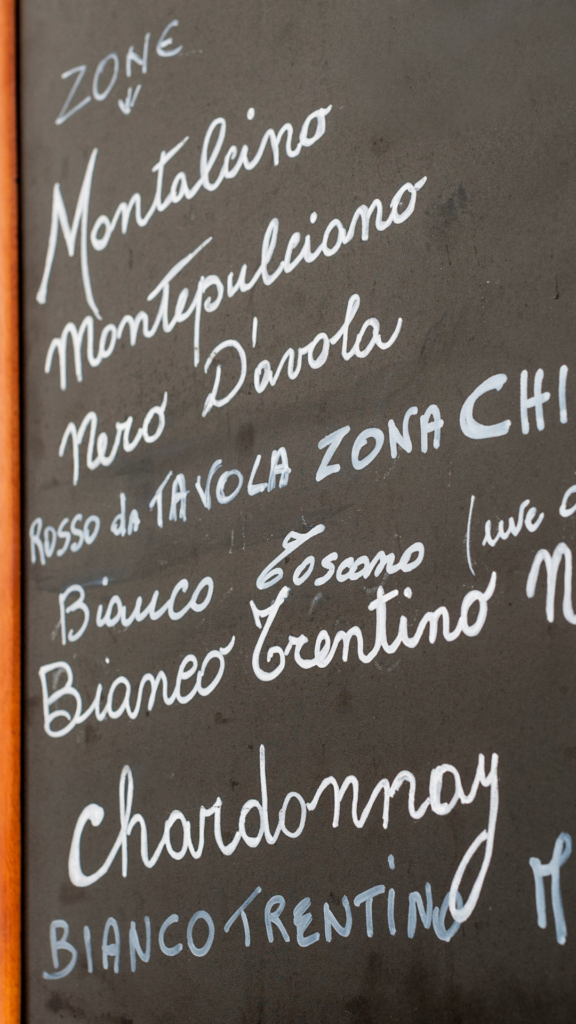 ZONE
Montalcino
Montepulciano
Nero D'avola
ROSSO da TAVOLA ZONA CHI
Bianco Toscano (uve
Bianco Trentino N
Chardonnay
BIANCO TRENTINO